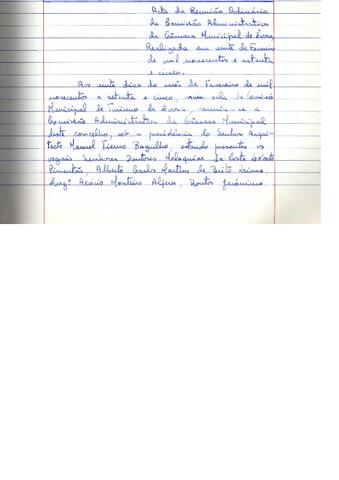 Acta da Reunião Ordinária
da Comissão Administrativa
da Câmara Municipal de Évora
Realizada em vinte de Fevereiro
de mil novecentos e setenta
e cinco.
Aos vinte dias do mês de Fevereiro de mil
novecentos e setenta e cinco, numa sala da Comissão
Municipal de Turismo de Évora, reuniu-se a
Comissão Administrativa da Câmara Municipal
deste concelho, sob a presidência do Senhor Arqui-
tecto Manuel Bagulho, estando presentes os
vogais Senhores Doutores Malaquias da Costa
Pimentão, Alberto Carlos Martins de Brito Lima,
Engº Acácio Monteiro, Doutor Jerónimo